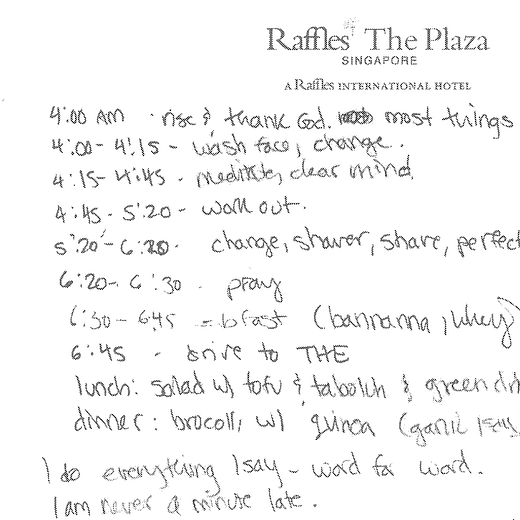 Raffles The Plaza
SINGAPORE
A Raffles INTERNATIONAL HOTEL
4:00 AM · rise & thank God. most things
4:00 - 4:15 - wash face, change.
4:15 - 4:45 - meditate, clear mind.
4:45 - 5:20 - work out.
5:20 - 6:20 - change, shower, shave, perfect
6:20 - 6:30 - pray
6:30 - 6:45 - bfast (bannanna, whey)
6:45 - drive to THE
lunch: salad w/ tofu & tabolih & green
dinner: brocolli w/ quinoa (garlic
I do everything I say - word for word.
I am never a minute late.